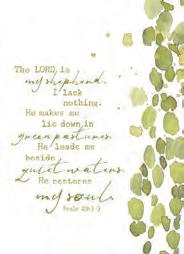 The LORD, is
my shepherd.
I lack
nothing.
He makes me
lie down in
green pastures.
He leads me
beside
quiet waters.
He restores
my soul.
Psalm 23:1-3